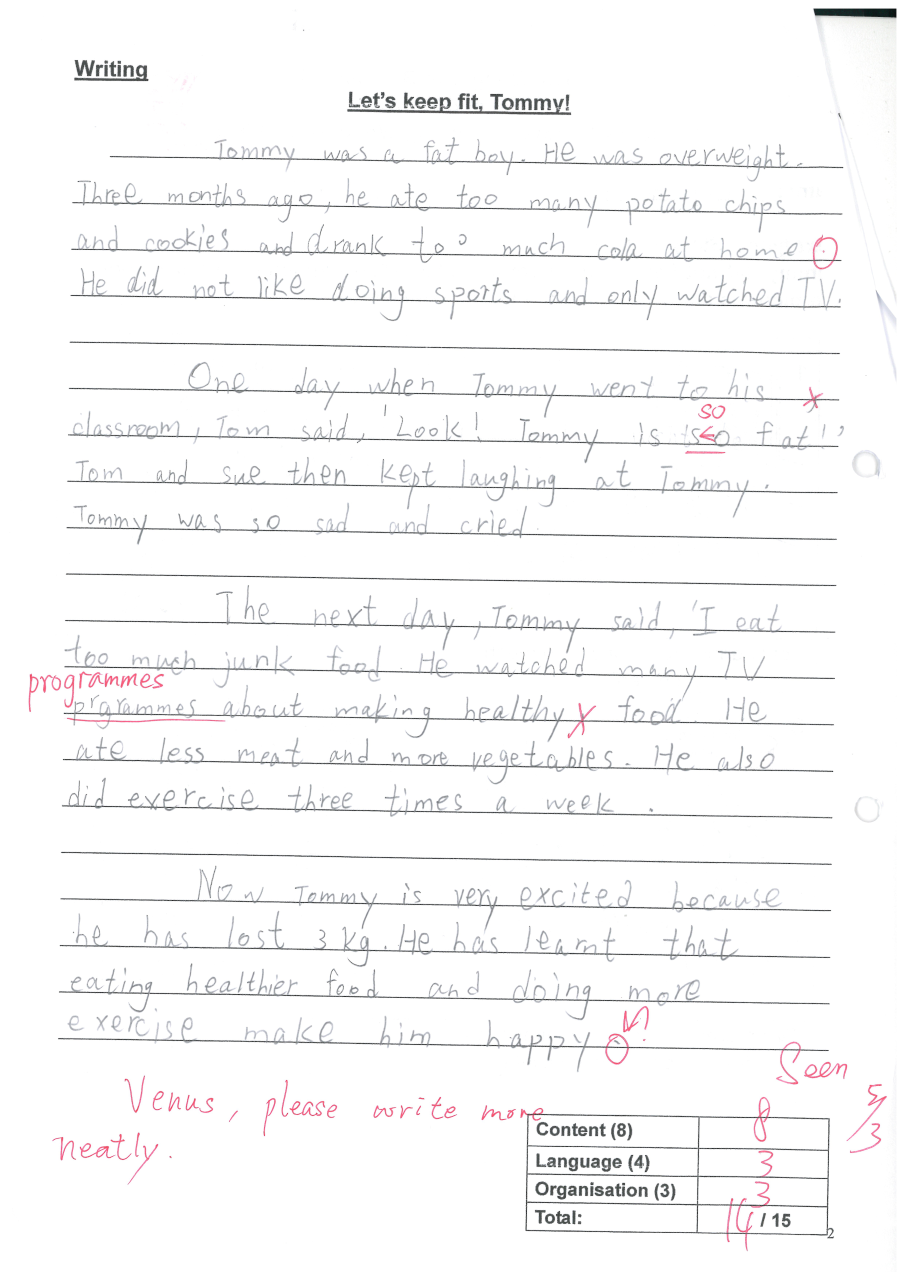 Writing
Let's keep fit, Tommy!
Tommy was a fat boy. He was overweight.
Three months ago, he ate too many potato chips
and cookies and drank too much cola at home.
He did not like doing sports and only watched TV.
One day when Tommy went to his
so
classroom, Tom said, 'Look! Tommy is so fat!'
Tom and sue then kept laughing at Tommy.
Tommy was so sad and cried.
The next day, Tommy said, 'I eat
too much junk food. He watched many TV
programmes
prgrammes about making healthy food. He
ate less meat and more vegetables. He also
did exercise three times a week.
Now Tommy is very excited because
he has lost 3 kg. He has learnt that
eating healthier food and doing more
exercise make him happy.
Seen
5/3
Venus, please write more
neatly.
Content (8) 8
Language (4) 3
Organisation (3) 3
Total: 14 / 15
2